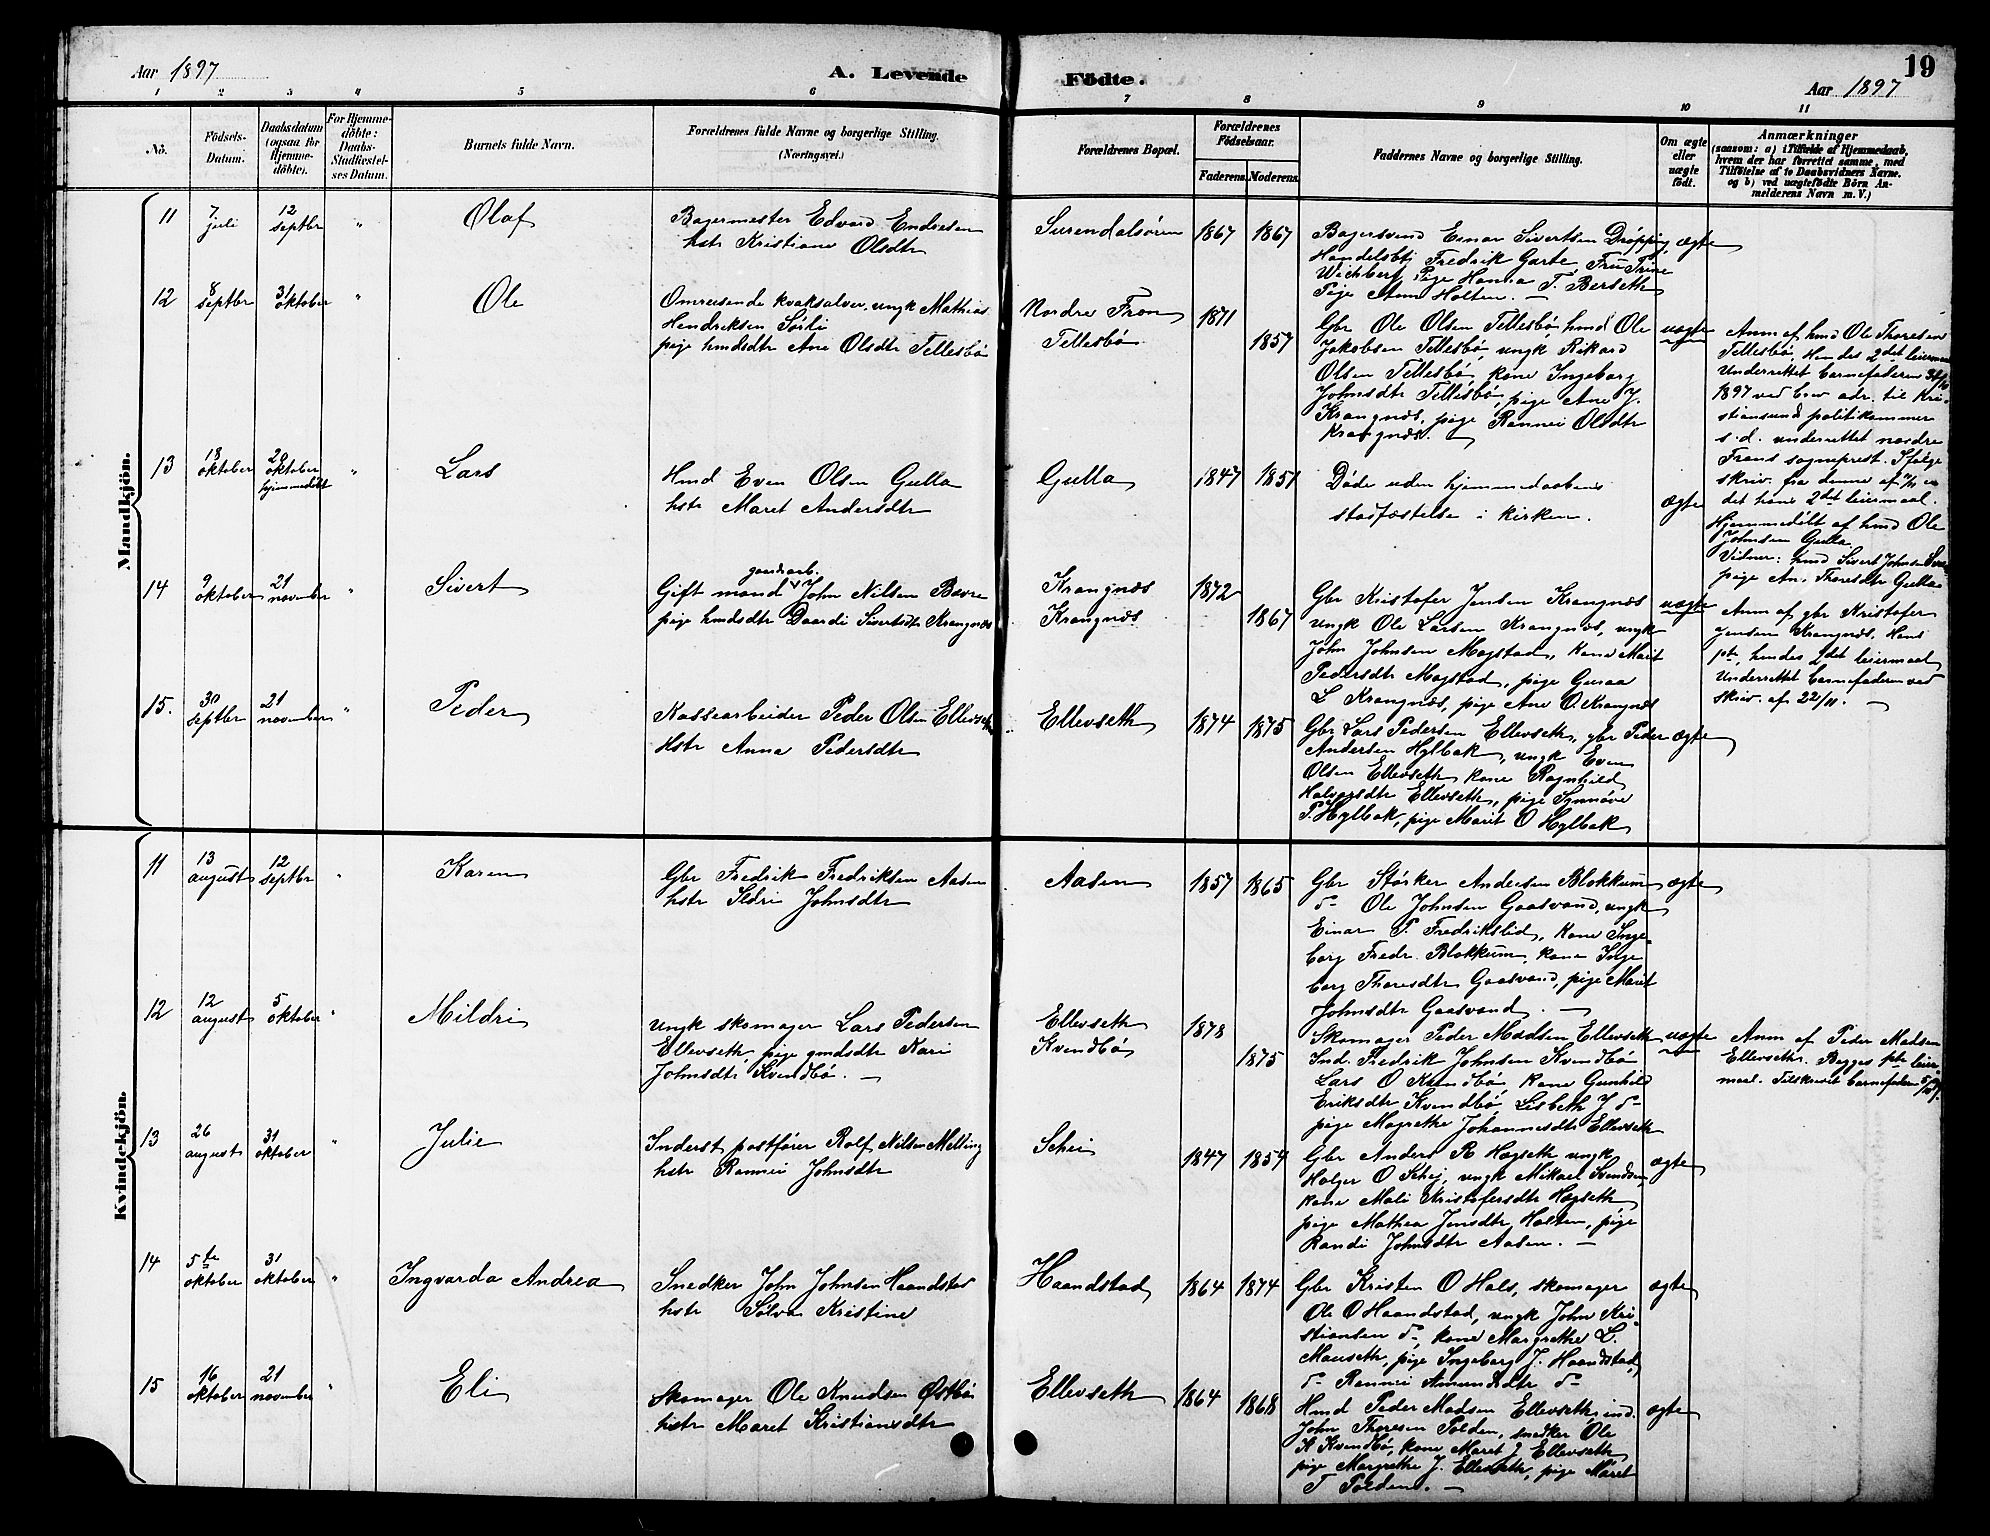 Aar 1897
A. Levende Födte.
Aar 1897
19
1 2 3 4 5 6 7 8 9 10 11
No.
Födsels-Datum.
Daabsdatum (ogsaa for Hjemme-döbte).
For Hjemme-döbte: Daabs-Stadfæstel-ses Datum.
Barnets fulde Navn.
Forældrenes fulde Navne og borgerlige Stilling.
(Næringsvei.)
Forældrenes Bopæl.
Forældrenes Födselsaar.
Faderens. Moderens.
Faddernes Navne og borgerlige Stilling.
Om ægte eller uægte födt.
Anmærkninger
(saasom: a) i Tilfælde af Hjemmedaab,
hvem der har forrettet samme, med
Tilföielse af to Daabsvidners Navne.
og b) ved uægtefödte Börn An-
melderens Navn m. V.)
Mandkjön.
11
7 juli
12 septbr
"
Olaf
Bagermester Edvard Endresen
hstr Kristiane Olsdtr
Surendalsøren
1867
1867
Bagersvend Einar Sivertsen Drøpping,
Handelsbtj Fredrik Garte, Fru Trine
Wichbert, Pige Hanna T. Berseth
Pige Ane Holten. —
ægte
12
8 septbr
31 oktober
"
Ole
Omreisende kvaksalver, ungk Mathias
Hendriksen Sørli
pige hmdsdtr Ane Olsdtr Tellesbø
Nordre Fron
Tellesbø
1871
1857
Gbr Ole Olsen Tellesbø, hmd Ole
Jakobsen Tellesbø, ungk Rikard
Olsen Tellesbø, kone Ingeborg
Johnsdtr Tellesbø, pige Ane J.
Krangnæs, pige Rannei Olsdtr
Krangnæs. —
uægte
Anm af hmd Ole Thoresen
Tellesbø, Hendes 2det leiermaal
Underrettet barnefaderen 31/10
1897 ved brev adr. til Kri-
stiansund politikammer
s. d. underrettet nordre
Frons sogneprest. Ifølge
skriv. fra denne af
det hans 2det leiermaal.
13
18 oktober
20 oktober
hjemmedøbt
"
Lars
Hmd Even Olsen Gulla
hstr Maret Andersdtr
Gulla
1847
1851
Døde uden hjemmedaabens
stadfæstelse i kirken.
ægte
Hjemmedøbt af hmd Ole
Johnsen Gulla.
Vidner: hmd Sivert Johnsen
pige An. Thoresdtr Gulla
14
9 oktober
21 november
"
Sivert
gaardarb.
Gift mand John Nilsen Bævre
pige hmdsdtr Daardi Sivertsdtr Krangnæs
Krangnæs
Krangnæs
1872
1867
Gbr Kristofer Jensen Krangnæs
ungk Ole Larsen Krangnæs, ungk
John Johnsen Mogstad, kone Marit
Pedersdtr Mogstad, pige Guraa
L Krangnæs, pige Ane O. Krangnæs
uægte
Anm af gbr Kristofer
Jensen Krangnæs. Hans
1ste, hendes 2det leiermaal
Underrettet barnefaderen ved
skriv. af 22/11. —
15.
30 septbr
21 november
"
Peder
Kassearbeider Peder Olsen Ellevseth
Hstr Anna Pedersdtr
Ellevseth
1874
1875
Gbr Lars Pedersen Ellevseth, gbr Peder
Andersen Hylbak, ungk Even
Olsen Ellevseth kone Ragnhild
Halvorsdtr Ellevseth, pige Synnøve
P. Hylbak, pige Marit O Hylbak
ægte
Kvindekjön.
11
13 august
12 septbr
"
Karen
Gbr Fredrik Fredriksen Aasen
hstr Sidri Johnsdtr
Aasen
1857
1865
Gbr Størker Andersen Blokkum
do Ole Johnsen Gaasvand, ungk
Einar P. Fredrikslid, kone Inge-
borg Fredr. Blokkum, kone Inge
borg Thoresdtr Gaasvand, pige Marit
Johnsdtr Gaasvand. —
ægte
12
12 august
5 oktober
"
Mildri
Ungk skomager Lars Pedersen
Ellevseth, pige gmdsdtr Kari
Johnsdtr Kvendbø. —
Ellevseth
Kvendbø
1878
1875
Skomager Peder Madsen Ellevseth
Ind. Fredrik Johnsen Kvendbø
Lars O Kvendbø, kone Gunhild
Eriksdtr Kvendbø, Lisbeth J do
pige Magrethe Johannesdtr Ellevseth
uægte
Anm af Peder Madsen
Ellevseth. Begges 1ste leier-
maal. Tilskrevet barnefaderen 5/10 97.
13
26 august
31 oktober
"
Julie
Inderst postfører Rolf Nilsen Melling
hstr Rannei Johnsdtr
Schei
1847
1854
Gbr Anders R Høgseth ungk
Holger O Skei, ungk Mikael Svendsen,
kone Mali Kristofersdtr Høgseth
pige Mathea Jensdtr Holten, pige
Randi Johnsdtr Aasen. —
ægte
14
5te oktober
31 oktober
"
Ingvarda Andrea
Snedker John Johnsen Haandstad
hstr Sølva Kristine
Haandstad
1864
1874
Gbr Kristen O Hals, skomager
Ole O Haandstad, ungk John Kri-
stiansen do, kone Margrethe L.
Mauseth, pige Ingeborg J. Haandstad,
do Rannei Amundsdtr do
ægte
15
16 oktober
21 november
"
Eli
Skomager Ole Knudsen Østbø
hstr Maret Kristiansdtr
Ellevseth
1864
1868
Hmd Peder Madsen Ellevseth, ind.
John Thoresen Polden, snedker Ole
K Kvendbø, kone Maret J Ellevseth
pige Margrethe J. Ellevseth, pige Maret
T Polden. —
ægte